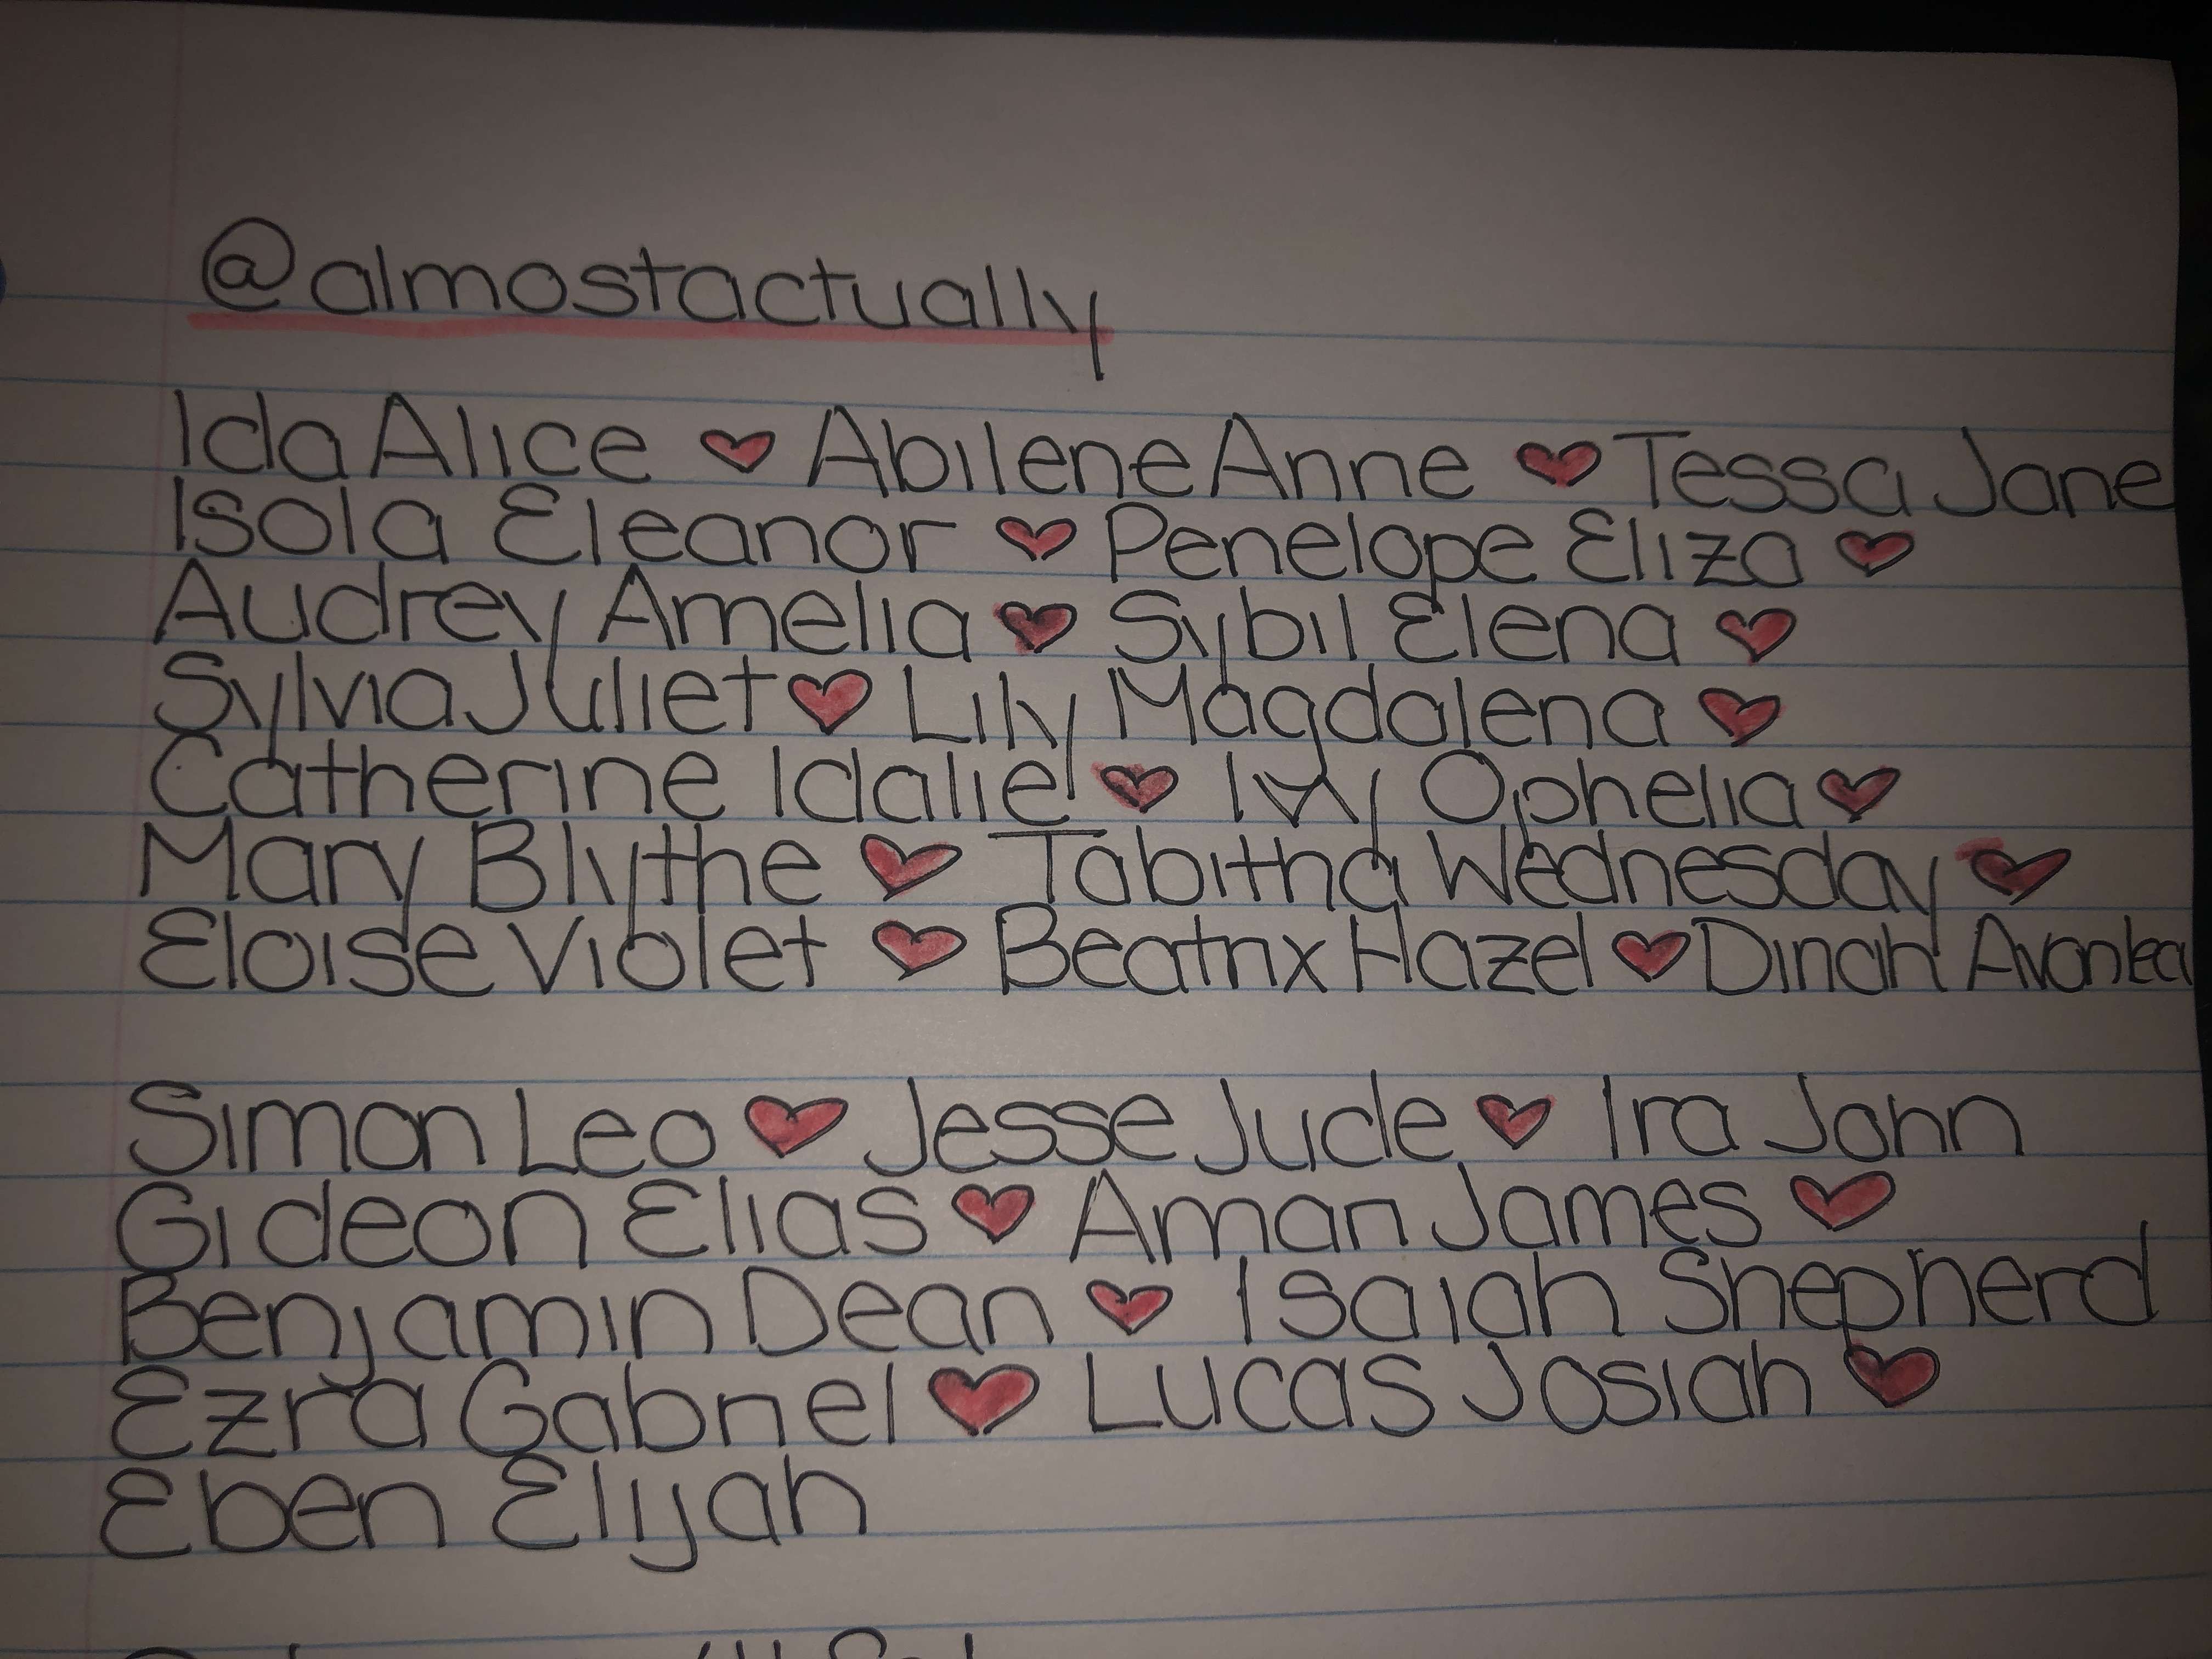 @almostactually
Ida Alice ♥ Abilene Anne ♥ Tessa Jane
Isola Eleanor ♥ Penelope Eliza ♥
Audrey Amelia ♥ Sybil Elena ♥
Sylvia Juliet ♥ Lily Magdalena ♥
Catherine Idalie ♥ Ivy Ophelia ♥
Mary Blythe ♥ Tabitha Wednesday ♥
Eloise Violet ♥ Beatrix Hazel ♥ Dinah Avonlea
Simon Leo ♥ Jesse Jude ♥ Ira John
Gideon Elias ♥ Aman James ♥
Benjamin Dean ♥ Isaiah Shepherd
Ezra Gabriel ♥ Lucas Josiah ♥
Eben Elijah